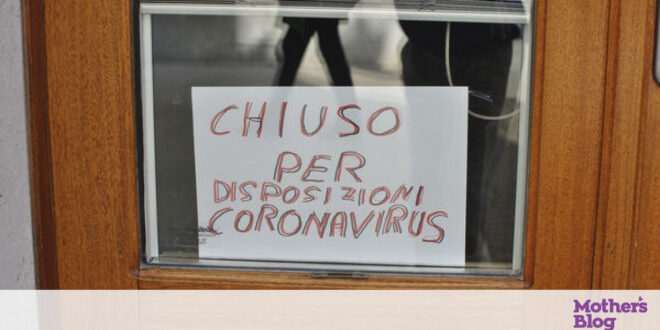 CHIUSO
PER
DISPOSIZIONI
CORONAVIRUS
Mother's
Blog